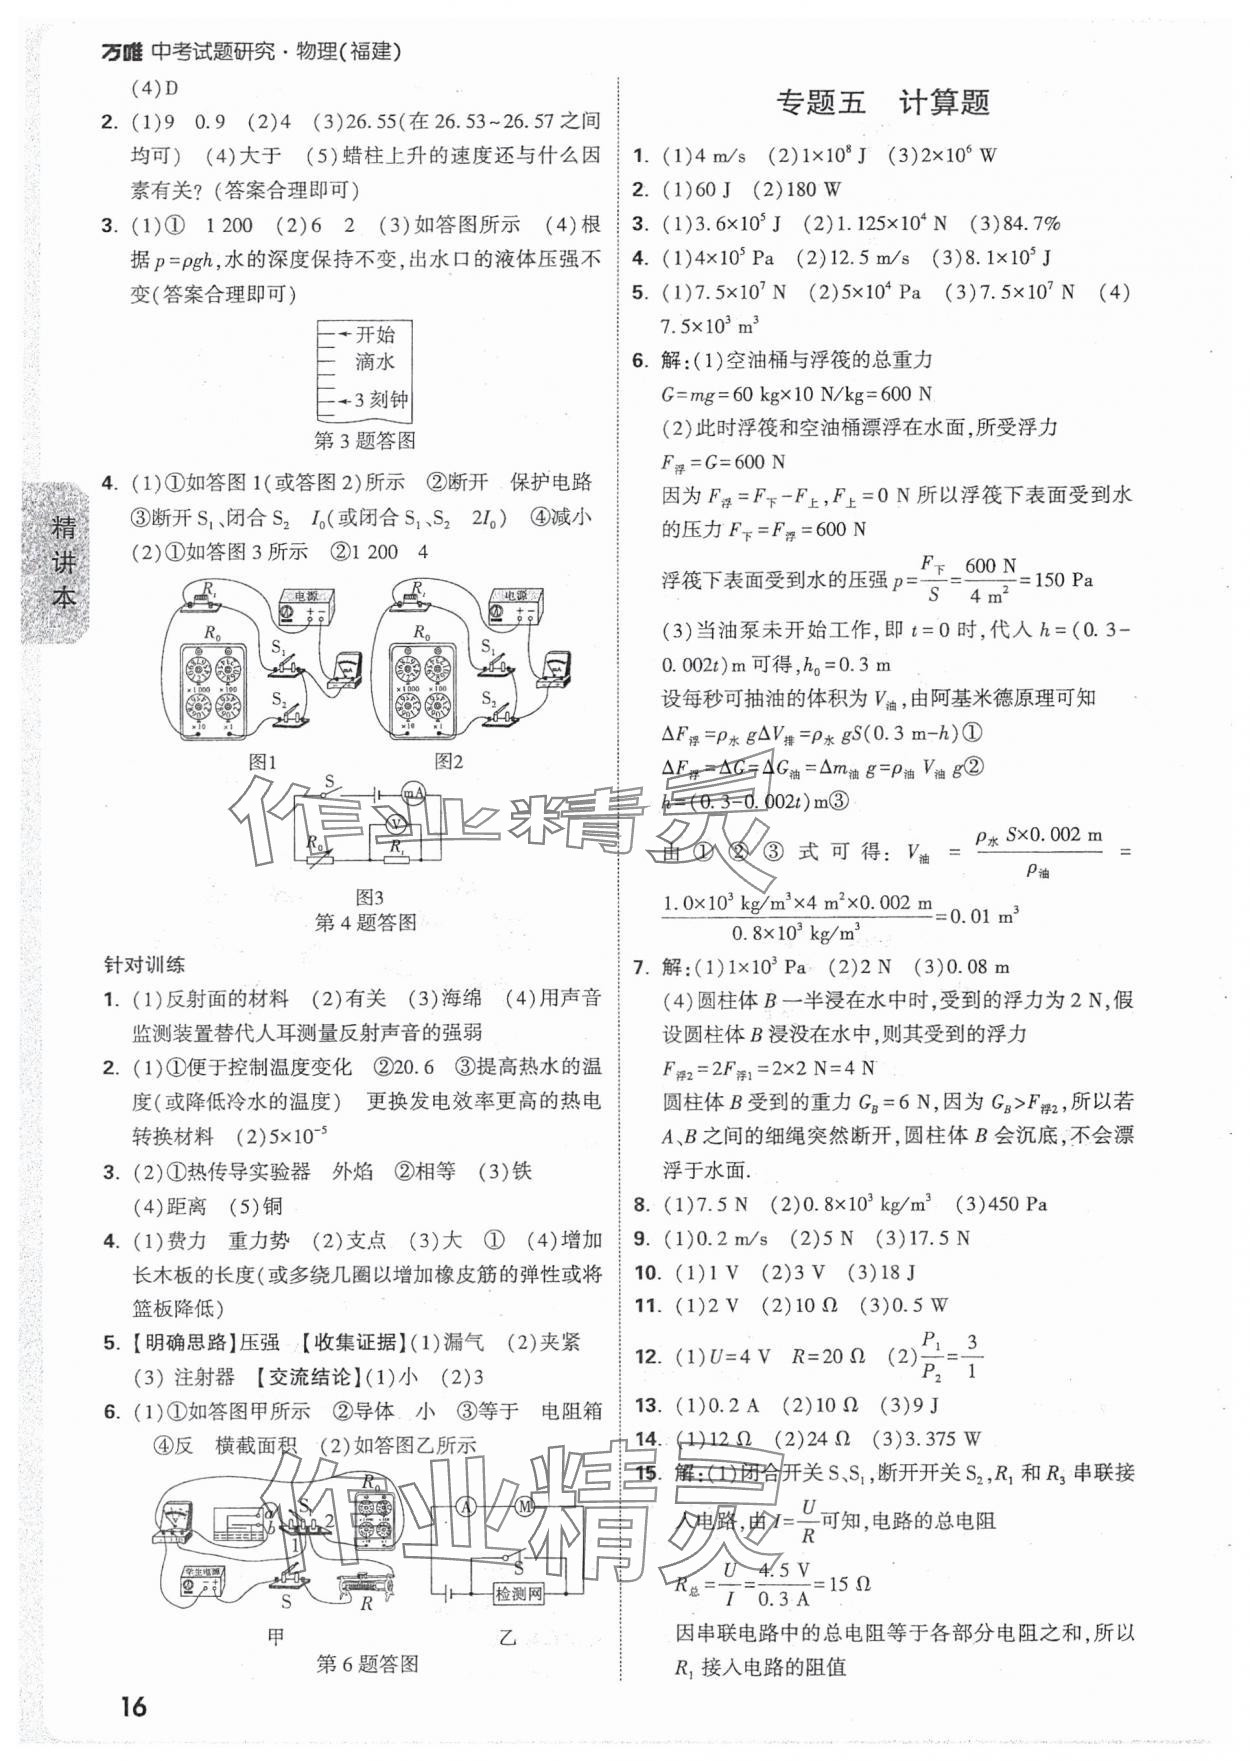 万唯 中考试题研究·物理(福建)
(4)D
2. (1)9 0.9 (2)4 (3)26.55(在 26.53~26.57 之间
均可) (4)大于 (5)蜡柱上升的速度还与什么因
素有关? (答案合理即可)
3. (1)① 1 200 (2)6 2 (3)如答图所示 (4)根
据 p=ρgh,水的深度保持不变,出水口的液体压强不
变(答案合理即可)
开始
滴水
3 刻钟
第 3 题答图
4. (1)①如答图 1(或答图 2)所示 ②断开 保护电路
③断开 S₁、闭合 S₂ I₀(或闭合 S₁、S₂ 2I₀) ④减小
(2)①如答图 3 所示 ②1 200 4
Rₜ 电源 R₀ S₁ S₂ ×1000 ×100 ×10 ×1
图1
Rₜ 电源 R₀ S₁ S₂ ×1000 ×100 ×10 ×1
图2
S mA V R₀ Rₜ
图3
第 4 题答图
针对训练
1. (1)反射面的材料 (2)有关 (3)海绵 (4)用声音
监测装置替代人耳测量反射声音的强弱
2. (1)①便于控制温度变化 ②20.6 ③提高热水的温
度(或降低冷水的温度) 更换发电效率更高的热电
转换材料 (2)5×10⁻⁵
3. (2)①热传导实验器 外焰 ②相等 (3)铁
(4)距离 (5)铜
4. (1)费力 重力势 (2)支点 (3)大 ① (4)增加
长木板的长度(或多绕几圈以增加橡皮筋的弹性或将
篮板降低)
5. 【明确思路】压强 【收集证据】(1)漏气 (2)夹紧
(3) 注射器 【交流结论】(1)小 (2)3
6. (1)①如答图甲所示 ②导体 小 ③等于 电阻箱
④反 横截面积 (2)如答图乙所示
a b S₁ 1 2 R₀ 学生电源 S R
甲
A M S 检测网
乙
第 6 题答图
16
精讲本
专题五 计算题
1. (1)4 m/s (2)1×10⁸ J (3)2×10⁶ W
2. (1)60 J (2)180 W
3. (1)3.6×10⁵ J (2)1.125×10⁴ N (3)84.7%
4. (1)4×10⁵ Pa (2)12.5 m/s (3)8.1×10⁵ J
5. (1)7.5×10⁷ N (2)5×10⁴ Pa (3)7.5×10⁷ N (4)
7.5×10³ m³
6. 解:(1)空油桶与浮筏的总重力
G=mg=60 kg×10 N/kg=600 N
(2)此时浮筏和空油桶漂浮在水面,所受浮力
F浮=G=600 N
因为 F浮=F下-F上,F上=0 N 所以浮筏下表面受到水
的压力 F下=F浮=600 N
浮筏下表面受到水的压强 p=F下/S=600 N/4 m²=150 Pa
(3)当油泵未开始工作,即 t=0 时,代人 h=(0.3-
0.002t)m 可得,h₀=0.3 m
设每秒可抽油的体积为 V油,由阿基米德原理可知
ΔF浮=ρ水 gΔV排=ρ水 gS(0.3 m-h)①
ΔF浮=ΔG=ΔG油=Δm油 g=ρ油 V油 g②
h=(0.3-0.002t)m③
由 ① ② ③ 式 可 得: V油 = ρ水 S×0.002 m/ρ油 =
1.0×10³ kg/m³×4 m²×0.002 m/0.8×10³ kg/m³=0.01 m³
7. 解:(1)1×10³ Pa (2)2 N (3)0.08 m
(4)圆柱体 B 一半浸在水中时,受到的浮力为 2 N,假
设圆柱体 B 浸没在水中,则其受到的浮力
F浮2=2F浮1=2×2 N=4 N
圆柱体 B 受到的重力 G_B=6 N,因为 G_B>F浮2,所以若
A、B 之间的细绳突然断开,圆柱体 B 会沉底,不会漂
浮于水面.
8. (1)7.5 N (2)0.8×10³ kg/m³ (3)450 Pa
9. (1)0.2 m/s (2)5 N (3)17.5 N
10. (1)1 V (2)3 V (3)18 J
11. (1)2 V (2)10 Ω (3)0.5 W
12. (1)U=4 V R=20 Ω (2)P₁/P₂=3/1
13. (1)0.2 A (2)10 Ω (3)9 J
14. (1)12 Ω (2)24 Ω (3)3.375 W
15. 解:(1)闭合开关 S、S₁,断开开关 S₂,R₁ 和 R₃ 串联接
人电路,由 I=U/R可知,电路的总电阻
R总=U/I=4.5 V/0.3 A=15 Ω
因串联电路中的总电阻等于各部分电阻之和,所以
R₁ 接入电路的阻值
作业精灵
作业精灵